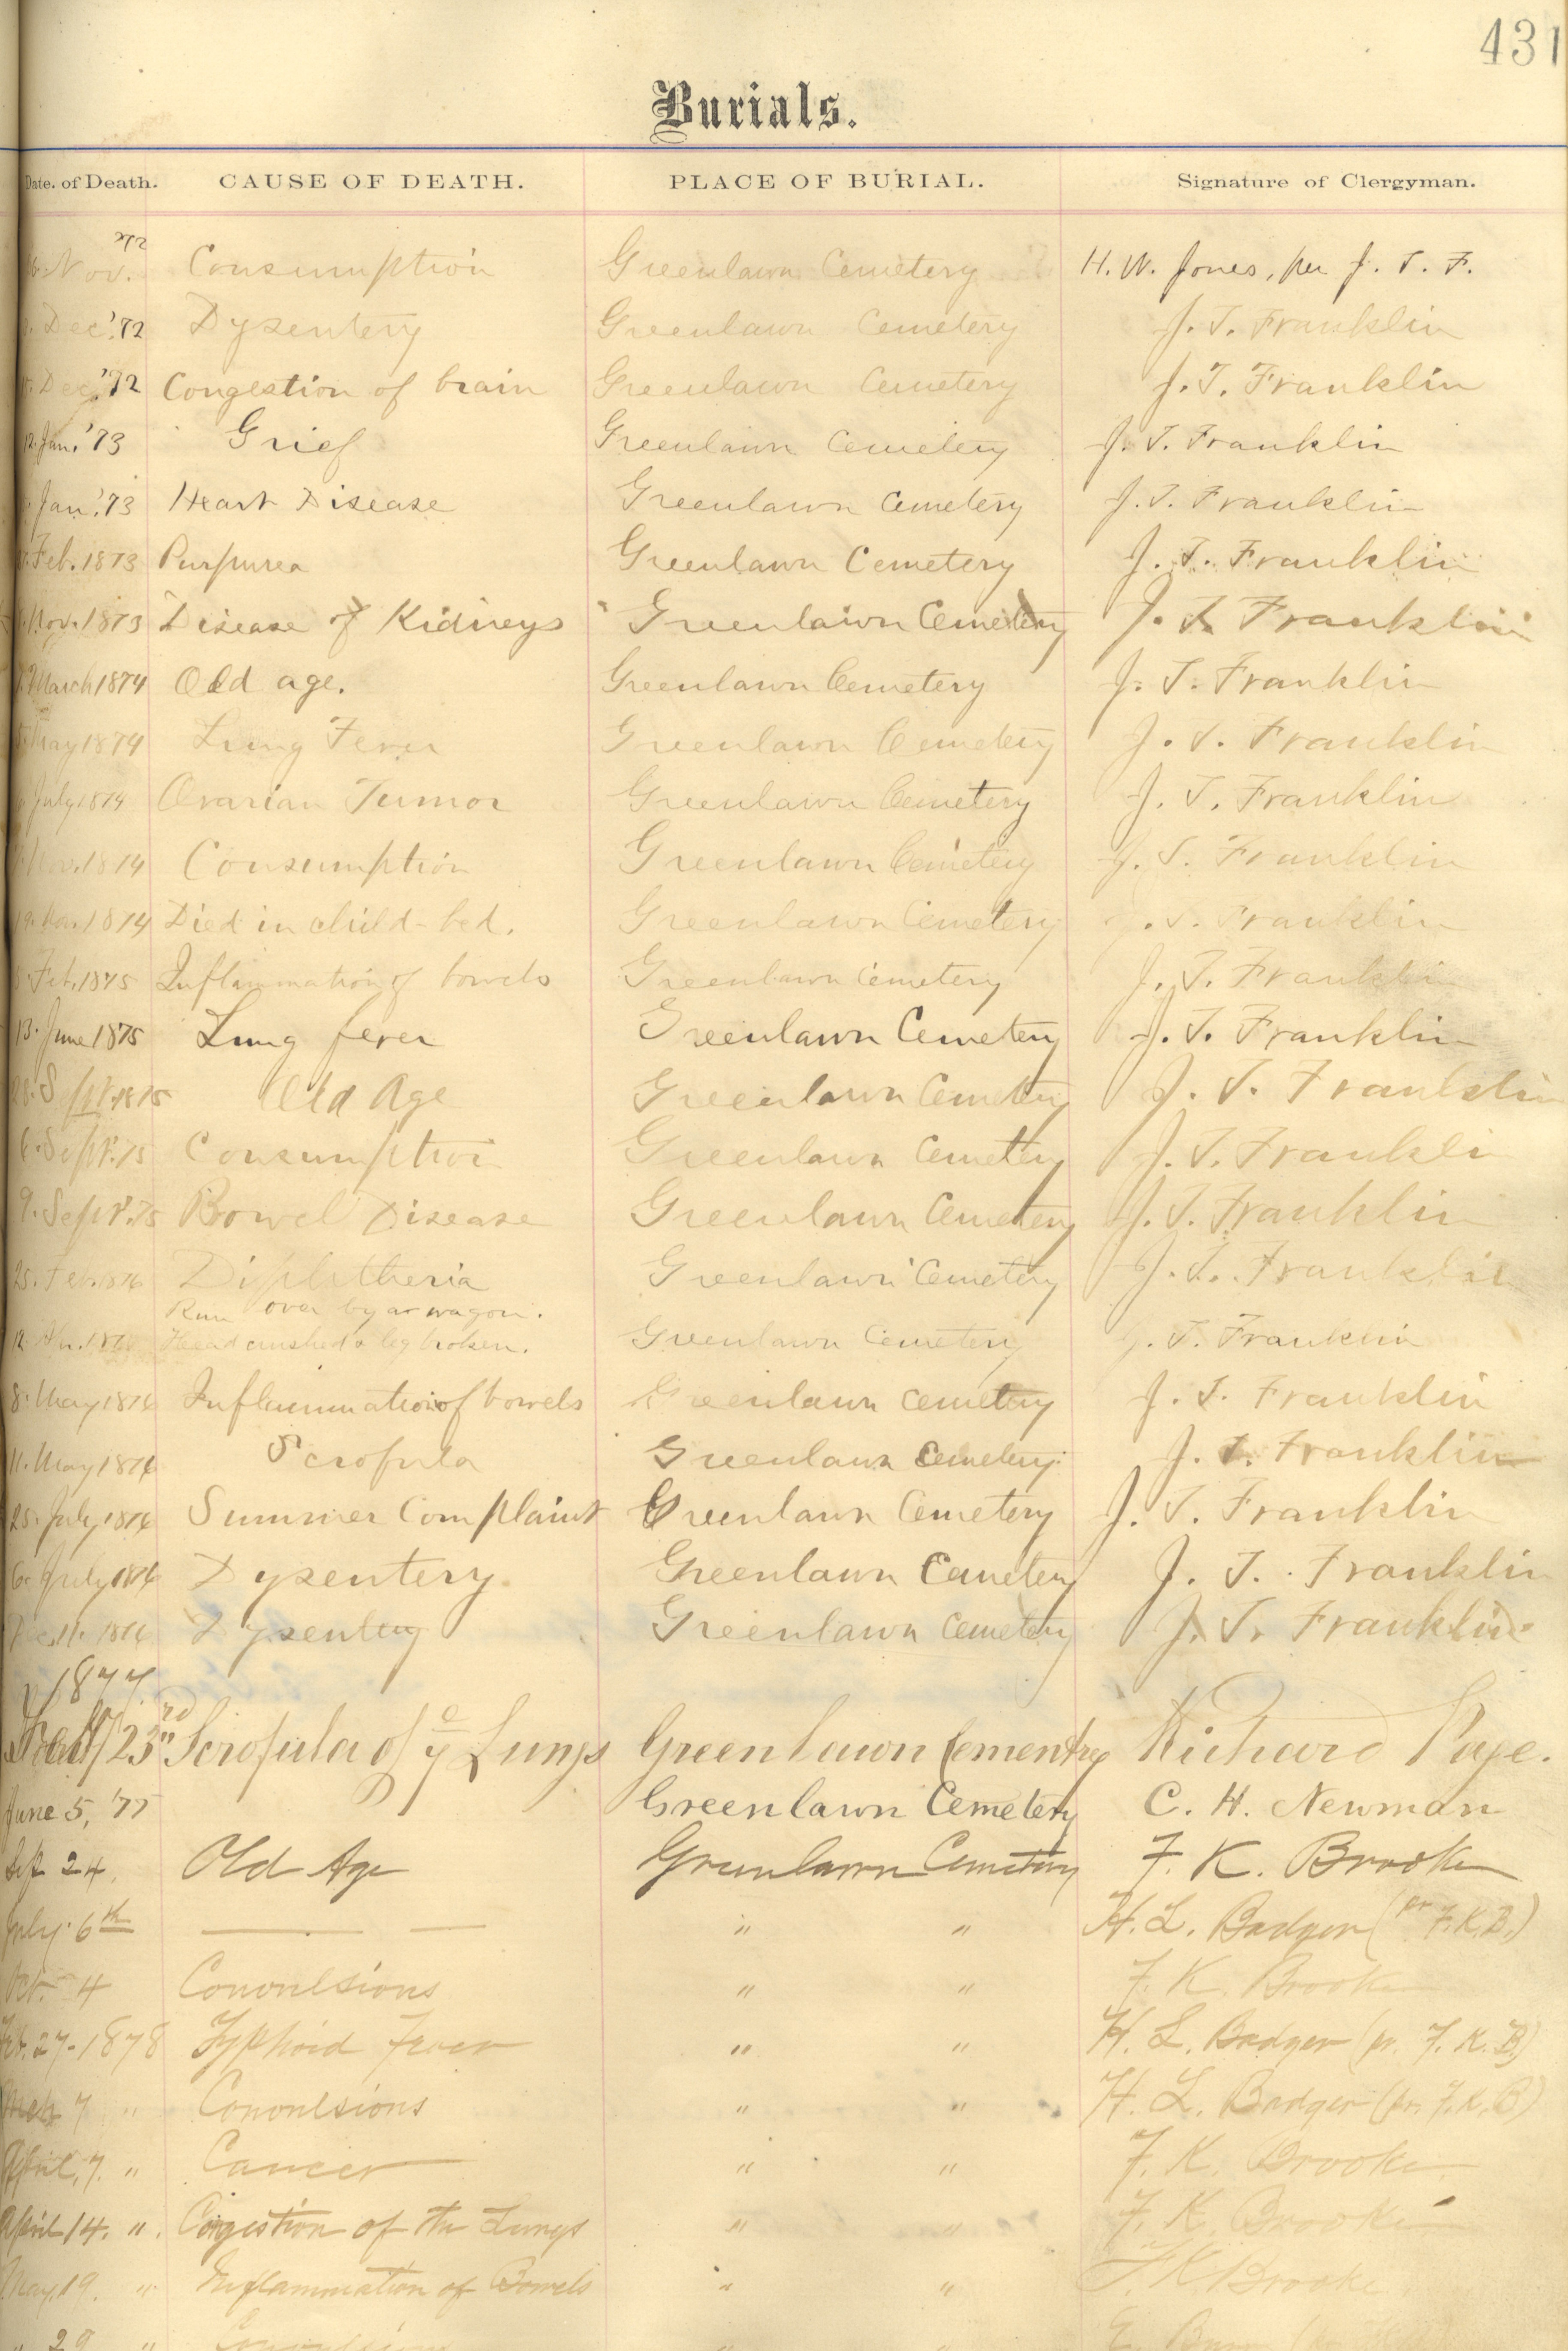 431
Burials.
Date. of Death. CAUSE OF DEATH. PLACE OF BURIAL. Signature of Clergyman.
Nov. '72 Consumption Greenlawn Cemetery H. W. Jones, per J. T. F.
Dec. '72 Dysentery Greenlawn Cemetery J. T. Franklin
Dec. '72 Congestion of brain Greenlawn Cemetery J. T. Franklin
12. Jan. '73 Grief Greenlawn Cemetery J. T. Franklin
Jan. '73 Heart Disease Greenlawn Cemetery J. T. Franklin
Feb. 1873 Purpurea Greenlawn Cemetery J. T. Franklin
Nov. 1873 Disease of Kidneys Greenlawn Cemetery J. T. Franklin
March 1874 Old age. Greenlawn Cemetery J. T. Franklin
May 1874 Lung Fever Greenlawn Cemetery J. T. Franklin
July 1874 Ovarian Tumor Greenlawn Cemetery J. T. Franklin
Nov. 1874 Consumption Greenlawn Cemetery J. T. Franklin
1874 Died in child-bed. Greenlawn Cemetery J. T. Franklin
Feb. 1875 Inflammation of bowels Greenlawn Cemetery J. T. Franklin
13. June 1875 Lung fever Greenlawn Cemetery J. T. Franklin
Sept. 1875 Old Age Greenlawn Cemetery J. T. Franklin
6. Sept. 75 Consumption Greenlawn Cemetery J. T. Franklin
9. Sept. 75 Bowel Disease Greenlawn Cemetery J. T. Franklin
25. Feb. 1876 Diphtheria Greenlawn Cemetery J. T. Franklin
Run over by a wagon.
12. 1876 Head crushed & leg broken. Greenlawn Cemetery J. T. Franklin
8. May 1876 Inflammation of bowels Greenlawn Cemetery J. T. Franklin
11. May 1876 Scrofula Greenlawn Cemetery J. T. Franklin
25. July 1876 Summer Complaint Greenlawn Cemetery J. T. Franklin
6. July 1876 Dysentery. Greenlawn Cemetery J. T. Franklin
1876 Dysentery Greenlawn Cemetery J. T. Franklin
1877
23rd Scrofula of ye Lungs Green lawn Cementry Richard Page.
June 5, '77 Greenlawn Cemetery C. H. Newman
Sep 24. Old Age Greenlawn Cemetery F. K. Brooke
July 6th — — " " H. L. Badger (pr F. K. B.)
Oct. 4 Convulsions " " F. K. Brooke
Feb. 27 - 1878 Typhoid Fever " " H. L. Badger (pr. F. K. B.)
7 " Convulsions " " H. L. Badger (pr. F. K. B)
April 7. " Cancer " " F. K. Brooke
April 14. " Congestion of the Lungs " " F. K. Brooke
May 19. " Inflammation of Bowels " " F. K. Brooke
" 29 "